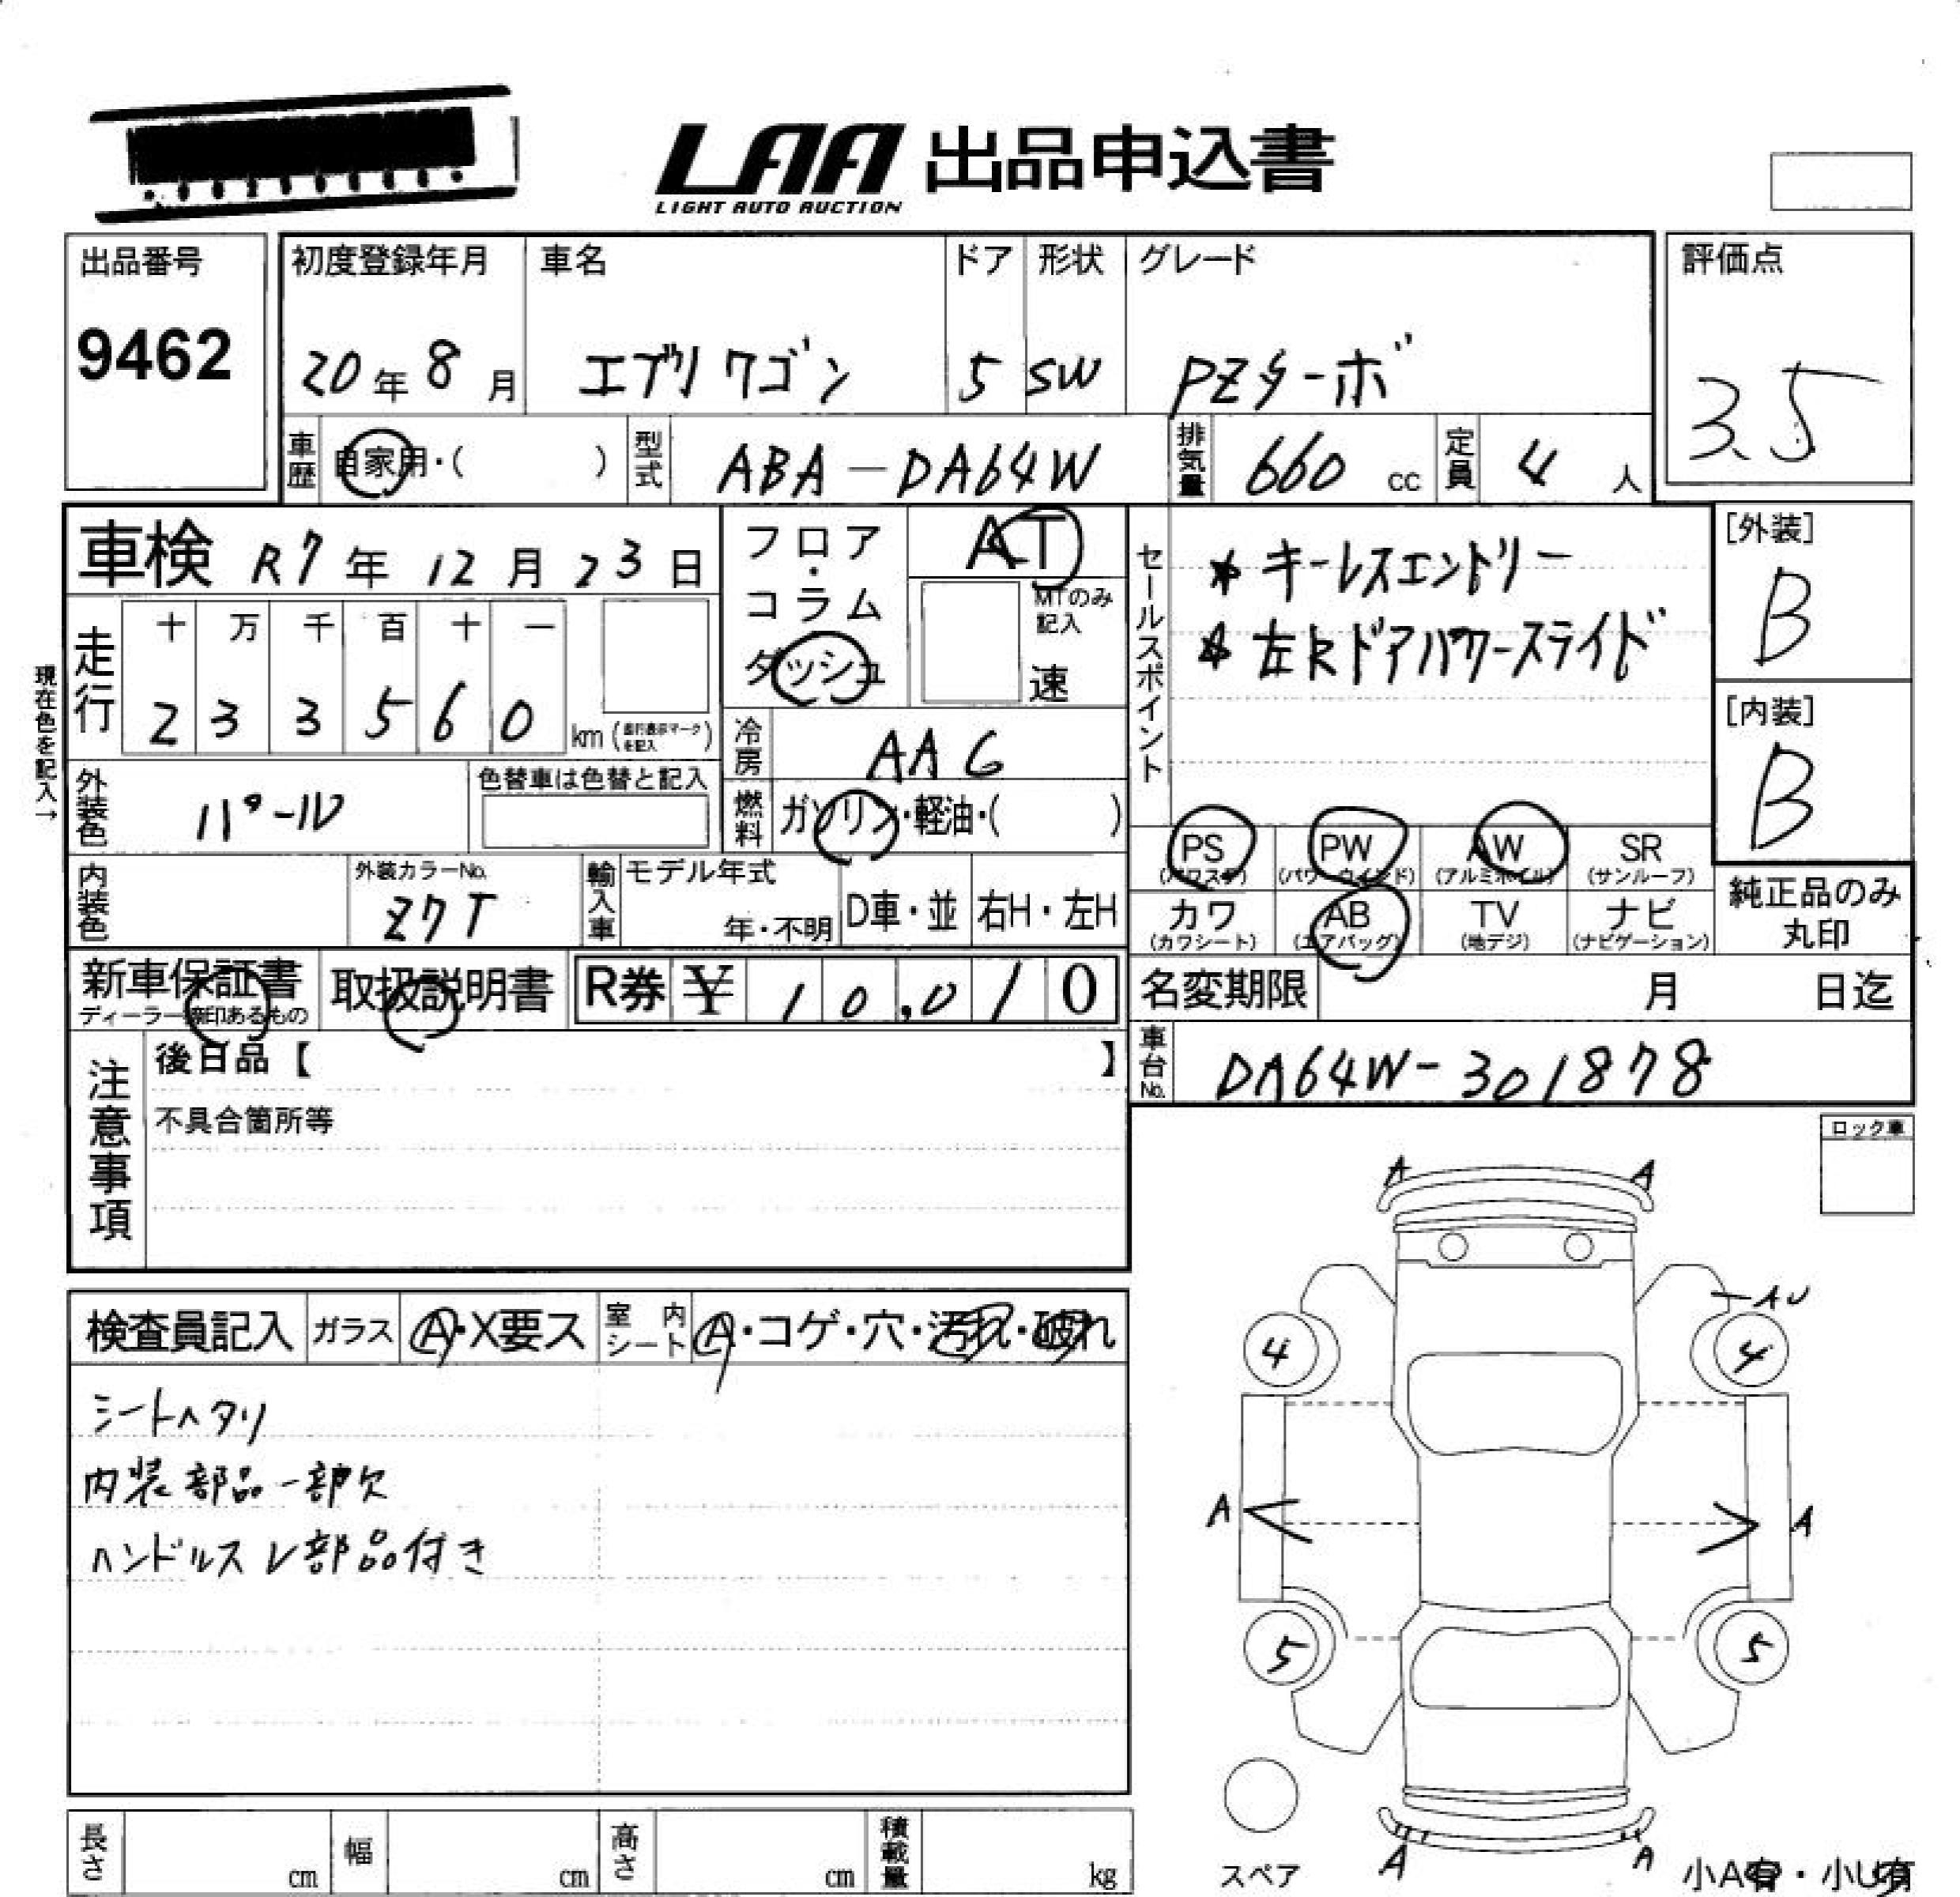 LAA 出品申込書
LIGHT AUTO AUCTION
出品番号
9462
初度登録年月
20年8月
車名
エブリワゴン
ドア
5
形状
SW
グレード
PZターボ
評価点
3.5
車歴 自家用・( )
型式 ABA-DA64W
排気量 660 cc
定員 4 人
車検 R7年12月23日
フロア・コラム
ダッシュ
AT
MTのみ記入
速
セールスポイント
★キーレスエントリー
★左Rドアパワースライド
[外装]
B
[内装]
B
現在色を記入→
走行
十 万 千 百 十 一
2 3 3 5 6 0 km (走行表示マークを記入)
冷房 AAG
燃料 ガソリン・軽油・( )
外装色 パール
色替車は色替と記入
内装色
外装カラーNo.
Z7T
輸入車
モデル年式
年・不明
D車・並
右H・左H
PS (パワステ)
PW (パワーウインド)
AW (アルミホイル)
SR (サンルーフ)
カワ (カワシート)
AB (エアバッグ)
TV (地デジ)
ナビ (ナビゲーション)
純正品のみ丸印
新車保証書
ディーラー捺印あるもの
取扱説明書
R券 ¥ 10,010
名変期限 月 日迄
車台No. DA64W-301878
注意事項
後日品【 】
不具合箇所等
ロック車
検査員記入
ガラス A・X要ス
室内シート A・コゲ・穴・汚れ・破れ
シートヘタリ
内装部品一部欠
ハンドルスレ部品付き
A A
AU
4 4
A A
5 5
スペア
A A
小A有・小U有
長さ cm
幅 cm
高さ cm
積載量 kg